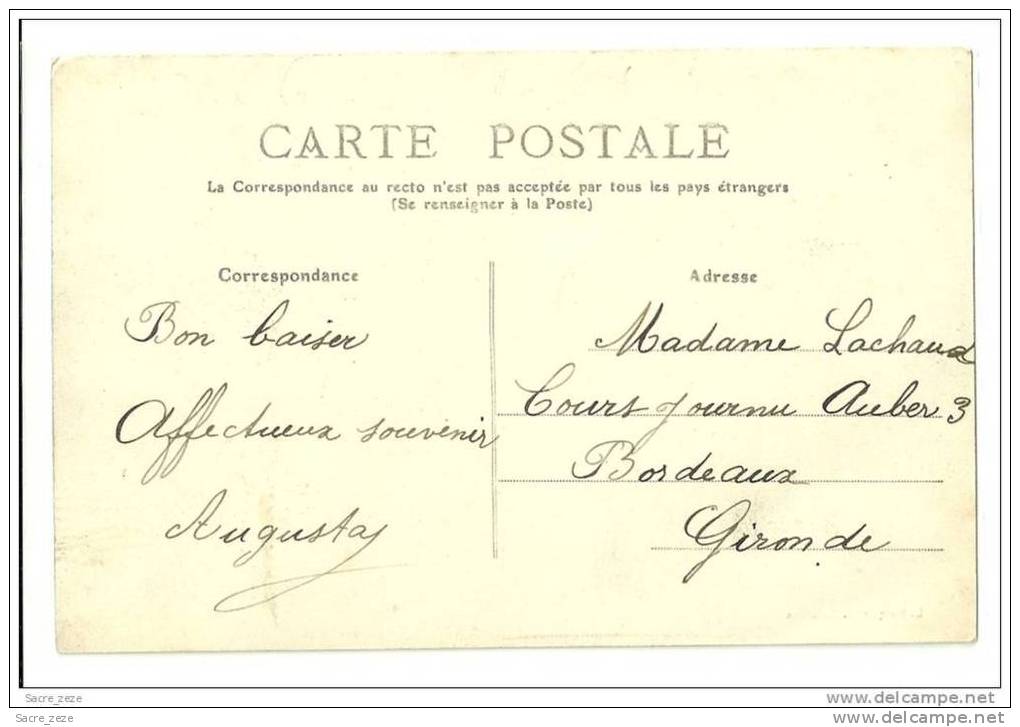 CARTE POSTALE
La Correspondance au recto n'est pas acceptée par tous les pays étrangers
(Se renseigner à la Poste)
Correspondance
Bon baiser
Affectueux souvenir
Augusta
Adresse
Madame Lachaud
Cours Journu Auber 3
Bordeaux
Gironde
Sacre_zeze
www.delcampe.net
Sacre_zeze
www.delcampe.net